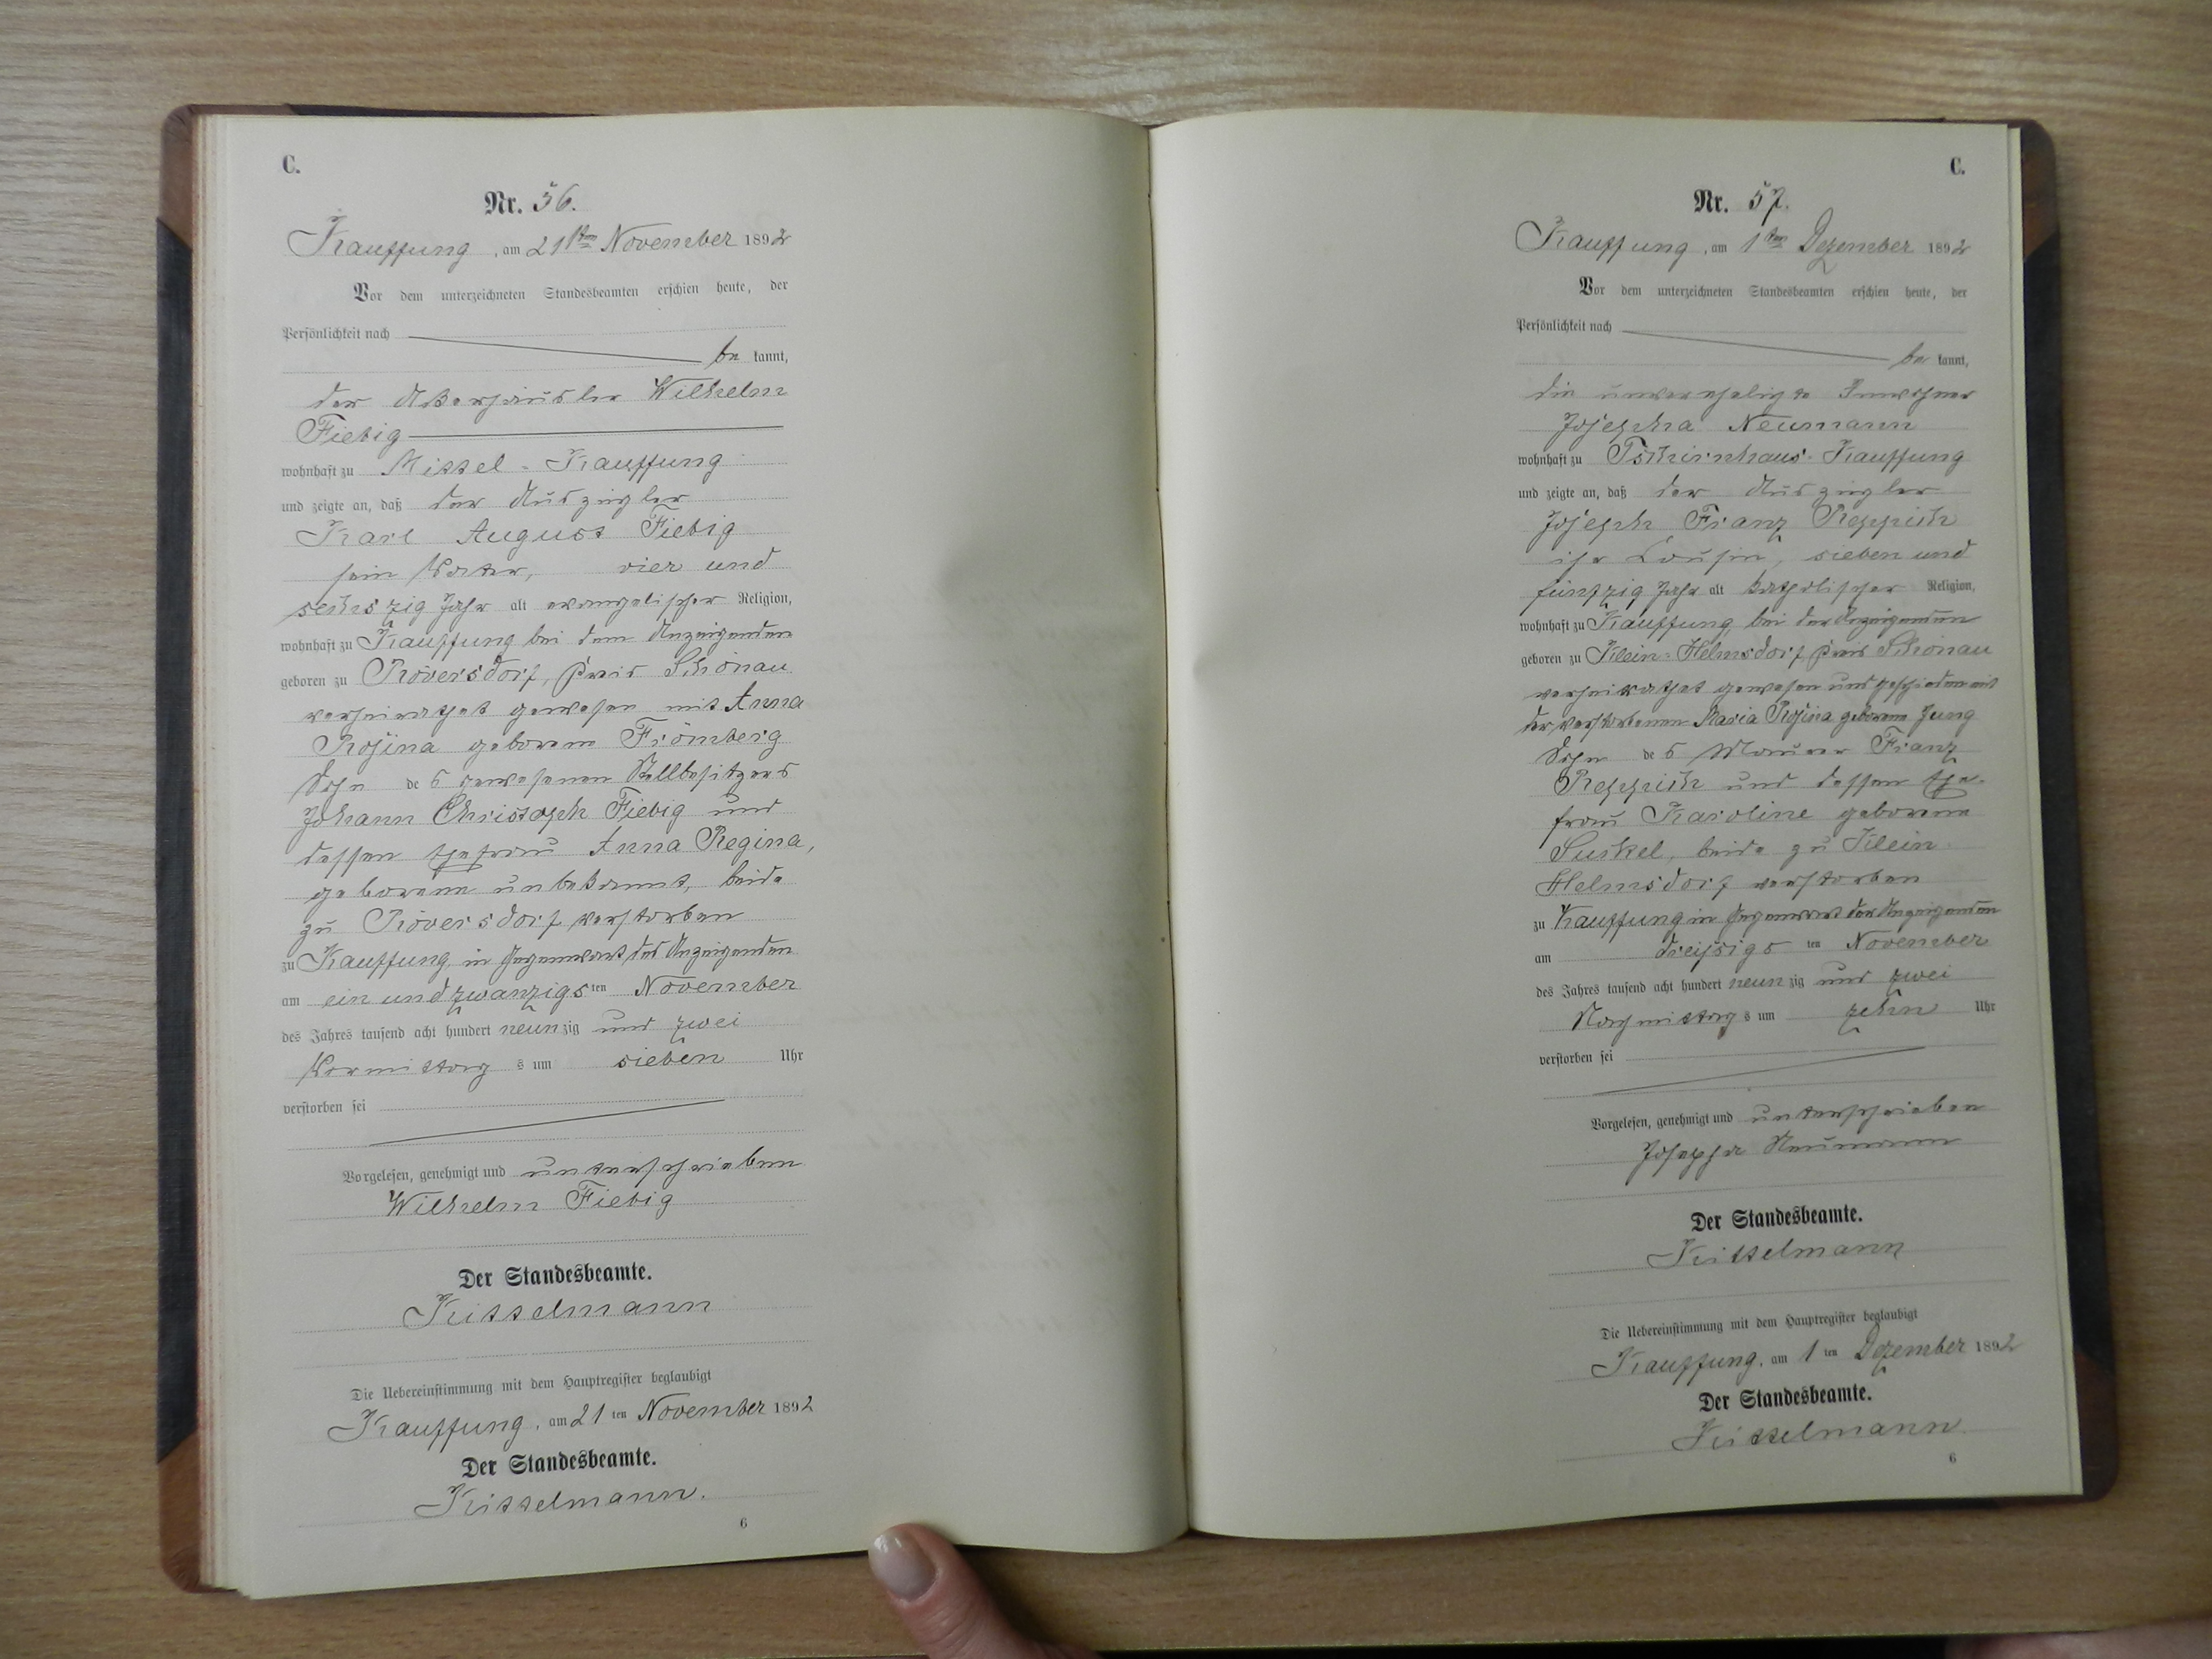 C.
Nr. 56.
Kauffung, am 21ten November 1892
Vor dem unterzeichneten Standesbeamten erschien heute, der
Persönlichkeit nach
be kannt,
der Wilhelm
Fiebig
wohnhaft zu Mittel-Kauffung
und zeigte an, daß der Auszügler
Karl August Fiebig
sein Vater, vier und
sechszig Jahr alt evangelischer Religion,
wohnhaft zu Kauffung bei dem Anzeigenden
geboren zu Röversdorf, Kreis Schönau
verheirathet gewesen mit Anna
Rosina geborene Frömberg
Sohn des gewesenen Stellbesitzers
Johann Christoph Fiebig und
dessen Ehefrau Anna Regina,
geborene unbekannt, beide
zu Röversdorf verstorben
zu Kauffung, in Gegenwart des Anzeigenden
am ein und zwanzigsten November
des Jahres tausend acht hundert neunzig und zwei
Vormittags um sieben Uhr
verstorben sei
Vorgelesen, genehmigt und unterschrieben
Wilhelm Fiebig
Der Standesbeamte.
Kittelmann
Die Uebereinstimmung mit dem Hauptregister beglaubigt
Kauffung, am 21 ten November 1892
Der Standesbeamte.
Kittelmann.
6
C.
Nr. 57.
Kauffung, am 1ten Dezember 1892
Vor dem unterzeichneten Standesbeamten erschien heute, der
Persönlichkeit nach
be kannt,
die unverehelichte
Josepha Neumann
wohnhaft zu Tschirnhaus-Kauffung
und zeigte an, daß der Auszügler
Joseph Franz Reppich
ihr Cousin, sieben und
fünfzig Jahr alt katholischer Religion,
wohnhaft zu Kauffung, bei der Anzeigenden
geboren zu Klein-Helmsdorf Kreis Schönau
verheirathet gewesen und geschieden mit
der verstorbenen Maria Rosina geborene Jung
Sohn des Maurer Franz
Reppich und dessen Ehe-
frau Karoline geborene
Suckel, beide zu Klein
Helmsdorf verstorben
zu Kauffung in Gegenwart der Anzeigenden
am dreißigsten November
des Jahres tausend acht hundert neunzig und zwei
Nachmittags um zehn Uhr
verstorben sei
Vorgelesen, genehmigt und unterschrieben
Josepha Neumann
Der Standesbeamte.
Kittelmann
Die Uebereinstimmung mit dem Hauptregister beglaubigt
Kauffung, am 1 ten Dezember 1892
Der Standesbeamte.
Kittelmann
6